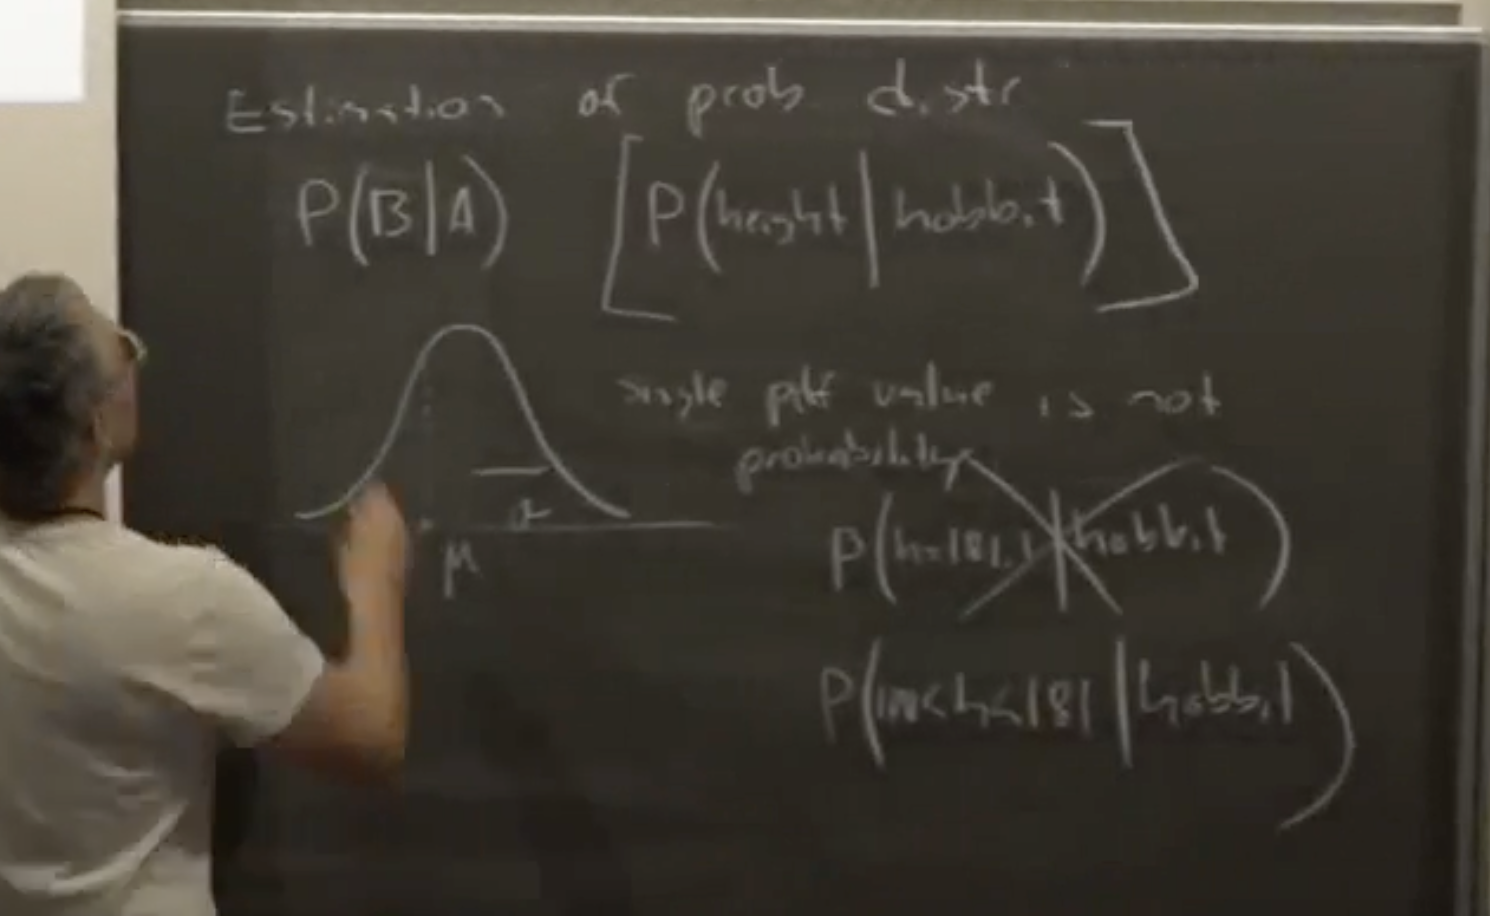 Estimation of prob distr
P(B|A) [P(height|hobbit)]
single pdf value is not
probability
σ
μ
P(h=181.1|hobbit)
P(<h<181|hobbit)